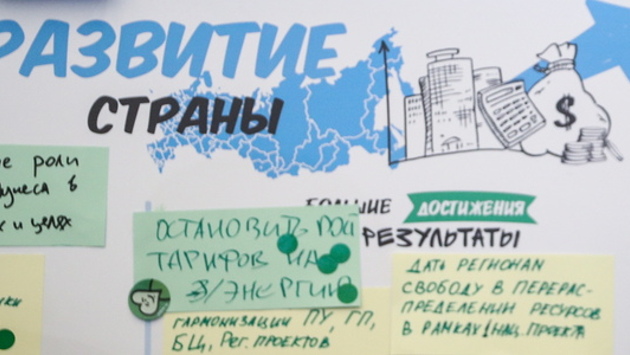 РАЗВИТИЕ
СТРАНЫ
$
е роли
бизнеса в
х и целях
БОЛЬШИЕ ДОСТИЖЕНИЯ
РЕЗУЛЬТАТЫ
ОСТАНОВИТЬ РОСТ
ТАРИФОВ НА
Э/ЭНЕРГИЮ
ГАРМОНИЗАЦИИ ПУ, ГП,
БЦ, РЕГ. ПРОЕКТОВ
ДАТЬ РЕГИОНАМ
СВОБОДУ В ПЕРЕРАС-
ПРЕДЕЛЕНИИ РЕСУРСОВ
В РАМКАХ НАЦ. ПРОЕКТА